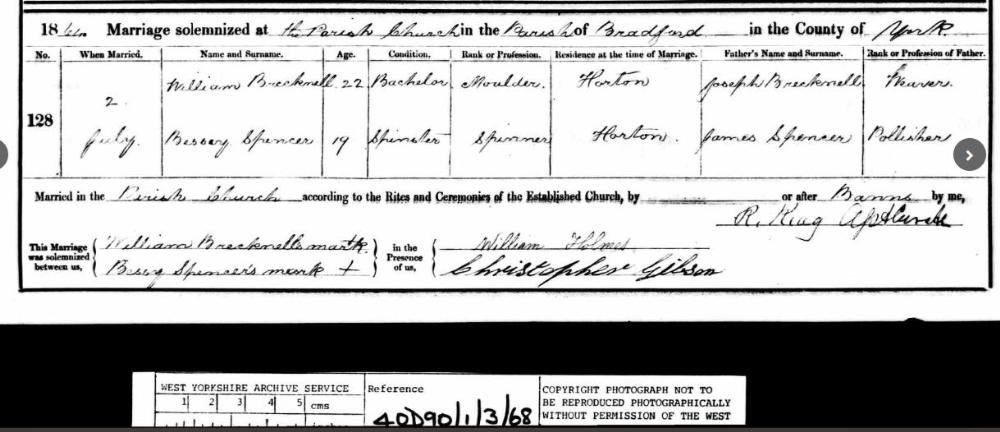 18 Marriage solemnized at the Parish Church in the Parish of Bradford in the County of York
No. When Married. Name and Surname. Age. Condition. Rank or Profession. Residence at the time of Marriage. Father's Name and Surname. Rank or Profession of Father.
128
2 July
William Brecknell 22 Bachelor Moulder. Horton Joseph Brecknell Weaver.
Bessey Spencer 19 Spinster Spinner Horton. James Spencer Pollisher
Married in the Parish Church according to the Rites and Ceremonies of the Established Church, by or after Banns by me,
R. King
This Marriage was solemnized between us, William Brecknell's mark in the Presence of us, William Holmes
Bessey Spencer's mark + Christopher Gibson
WEST YORKSHIRE ARCHIVE SERVICE
1 2 3 4 5 cms
Reference
40D90/1/3/68
COPYRIGHT PHOTOGRAPH NOT TO
BE REPRODUCED PHOTOGRAPHICALLY
WITHOUT PERMISSION OF THE WEST